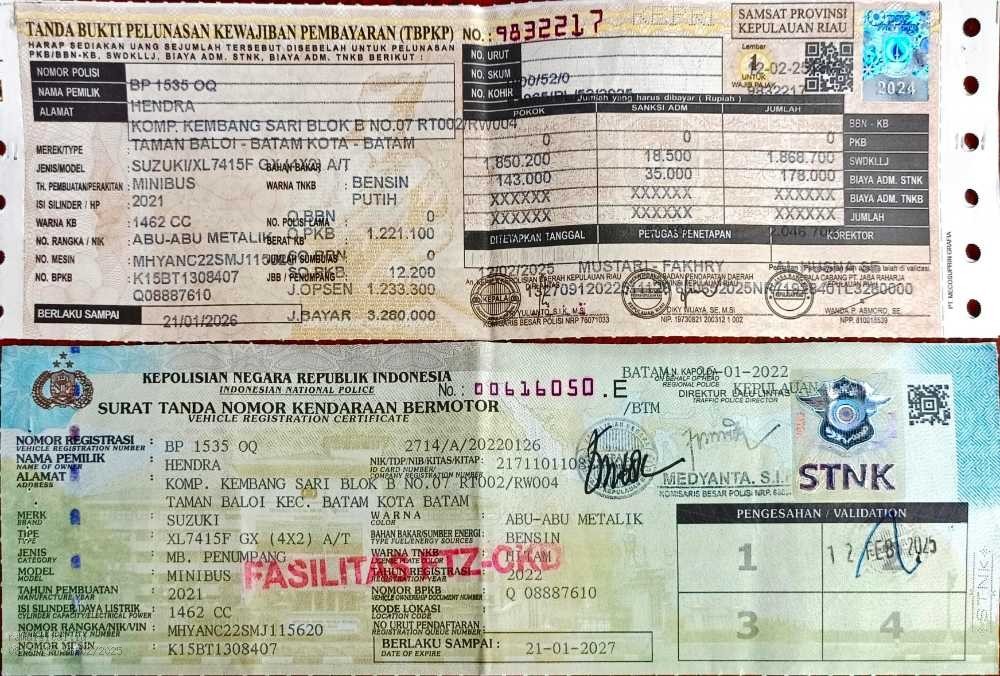 TANDA BUKTI PELUNASAN KEWAJIBAN PEMBAYARAN (TBPKP) NO.: 9832217
HARAP SEDIAKAN UANG SEJUMLAH TERSEBUT DISEBELAH UNTUK PELUNASAN
PKB/BBN-KB, SWDKLLJ, BIAYA ADM. STNK, BIAYA ADM. TNKB BERIKUT :
SAMSAT PROVINSI
KEPULAUAN RIAU
2024
Lembar
1
UNTUK
WAJIB PAJAK
NO. URUT
NO. SKUM
NO. KOHIR
NOMOR POLISI : BP 1535 OQ
NAMA PEMILIK : HENDRA
ALAMAT : KOMP. KEMBANG SARI BLOK B NO.07 RT002/RW004
TAMAN BALOI - BATAM KOTA - BATAM
MEREK/TYPE : SUZUKI/XL7415F GX (4X2) A/T
JENIS/MODEL : MINIBUS
BAHAN BAKAR : BENSIN
TH. PEMBUATAN/PERAKITAN : 2021
WARNA TNKB : PUTIH
ISI SILINDER / HP : 1462 CC
WARNA KB : ABU-ABU METALIK
NO. POLISI LAMA :
NO. RANGKA / NIK :
BERAT KB
NO. MESIN : K15BT1308407
JUMLAH SUMBU
NO. BPKB : Q08887610
JBB / PENUMPANG
O.BBN 0
O.PKB 1.221.100
0
12.200
J.OPSEN 1.233.300
J.BAYAR 3.280.000
BERLAKU SAMPAI : 21/01/2026
Jumlah yang harus dibayar ( Rupiah )
POKOK SANKSI ADM JUMLAH
0 0 0 BBN - KB
1.850.200 18.500 1.868.700 PKB
143.000 35.000 178.000 SWDKLLJ
XXXXXX XXXXXX XXXXXX BIAYA ADM. STNK
XXXXXX XXXXXX XXXXXX BIAYA ADM. TNKB
JUMLAH
DITETAPKAN TANGGAL PETUGAS PENETAPAN KOREKTOR
12/02/2025 MUSTARI- FAKHRY
KOMISARIS BESAR POLISI NRP 76071033
DIKY WIJAYA, SE, M.Si
NIP. 19730821 200312 1 002
KEPALA CABANG PT. JASA RAHARJA
WANDA P. ASMORO, SE.
PT. MECOSUPRIN GRAFIA
KEPOLISIAN NEGARA REPUBLIK INDONESIA
INDONESIAN NATIONAL POLICE
No.: 00616050 .E
SURAT TANDA NOMOR KENDARAAN BERMOTOR
VEHICLE REGISTRATION CERTIFICATE
/BTM
DIREKTUR LALU LINTAS
TRAFFIC POLICE DIRECTOR
NOMOR REGISTRASI : BP 1535 OQ 2714/A/20220126
VEHICLE REGISTRATION NUMBER
NAMA PEMILIK : HENDRA
NAME OF OWNER
NIK/TDP/NIB/KITAS/KITAP:
ID CARD NUMBER/
COMPANY NUMBER
ALAMAT : KOMP. KEMBANG SARI BLOK B NO.07 RT002/RW004
ADDRESS
TAMAN BALOI KEC. BATAM KOTA BATAM
MERK : SUZUKI
BRAND
WARNA : ABU-ABU METALIK
COLOR
TIPE : XL7415F GX (4X2) A/T
TYPE
BAHAN BAKAR/SUMBER ENERGI : BENSIN
TYPE FUEL/ENERGY SOURCES
JENIS : MB. PENUMPANG
CATEGORY
WARNA TNKB : HITAM
MODEL : MINIBUS
MODEL
TAHUN REGISTRASI : 2022
REGISTRATION YEAR
TAHUN PEMBUATAN : 2021
MANUFACTURE YEAR
NOMOR BPKB : Q 08887610
VEHICLE OWNERSHIP DOCUMENT NUMBER
ISI SILINDER/DAYA LISTRIK : 1462 CC
CYLINDER CAPACITY/ELECTRICAL POWER
KODE LOKASI :
LOCATION CODE
NOMOR RANGKA/NIK/VIN : MHYANC22SMJ115620
VEHICLE IDENTITY NUMBER
NO URUT PENDAFTARAN :
REGISTRATION QUEUE NUMBER
NOMOR MESIN : K15BT1308407
ENGINE NUMBER
BERLAKU SAMPAI : 21-01-2027
DATE OF EXPIRE
MEDYANTA, S.I.
STNK
PENGESAHAN / VALIDATION
1
12 FEB 2025
3 4